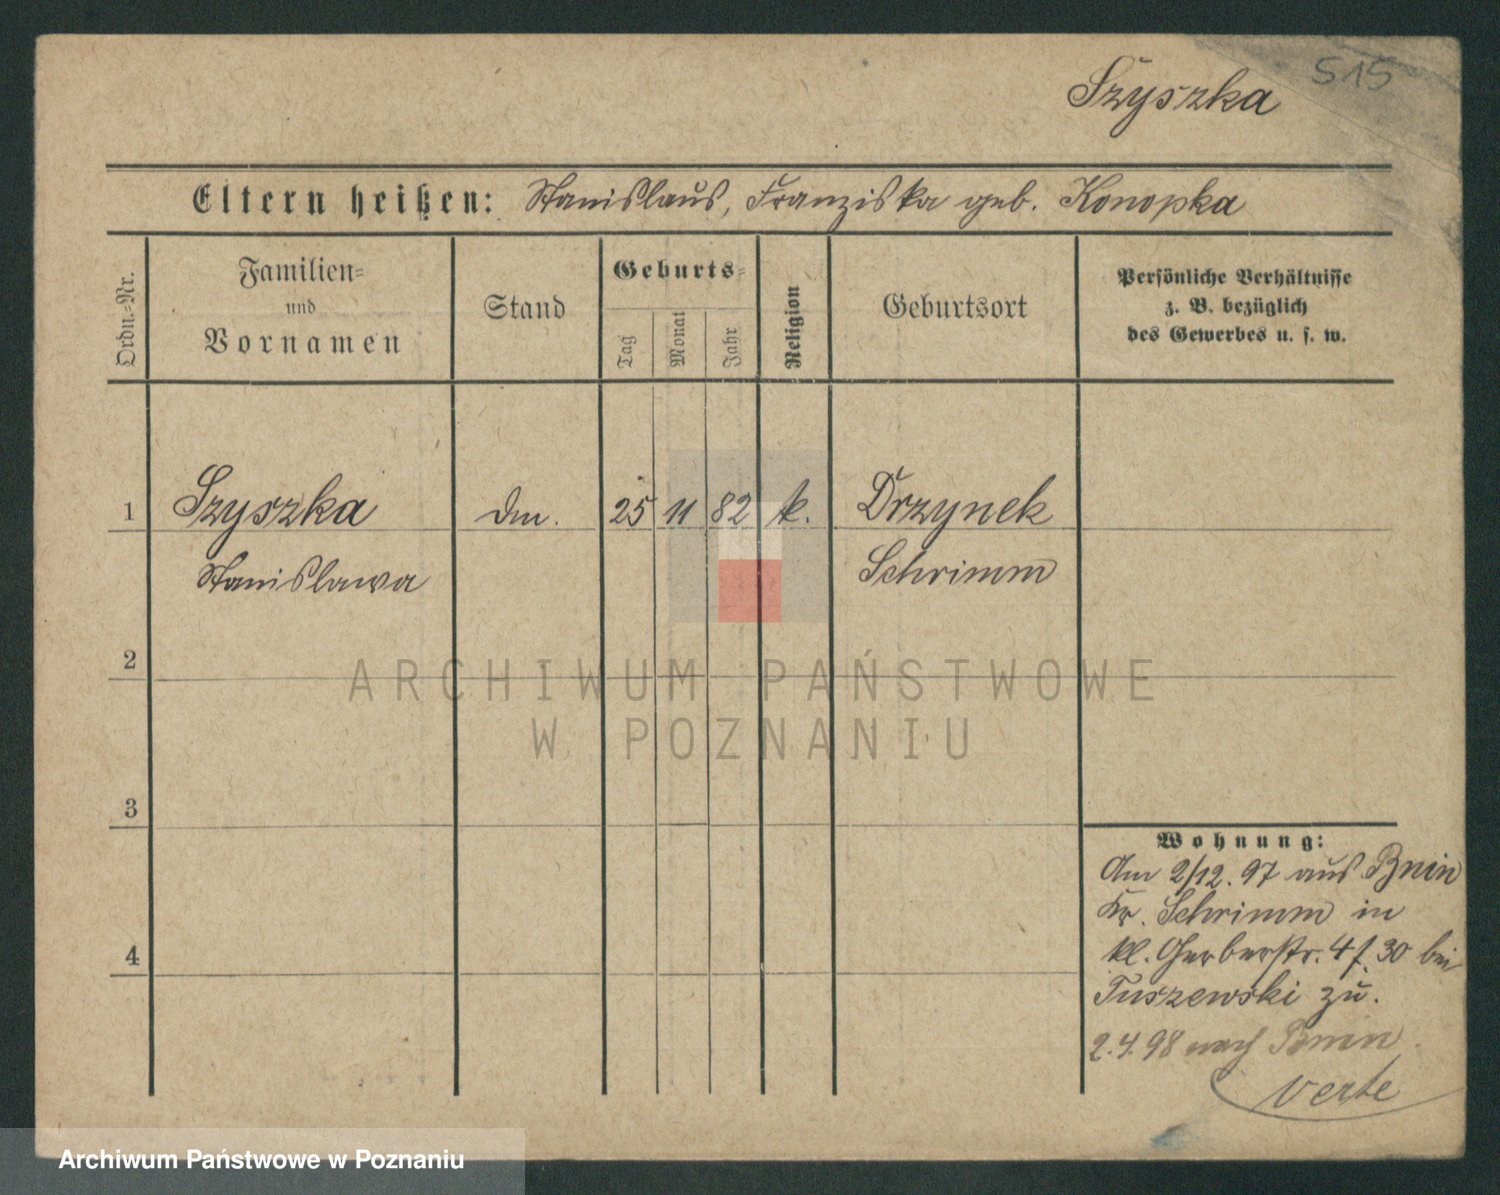 515
Szyszka
Eltern heißen: Stanislaus, Franziska geb. Konopka
Ordn.-Nr.
Familien-
und
Vornamen
Stand
Geburts-
Tag
Monat
Jahr
Religion
Geburtsort
Persönliche Verhältnisse
z. B. bezüglich
des Gewerbes u. s. w.
1 Szyszka dm. 25 11 82 k. Drzynek
Stanislawa Schrimm
2
3
4
Wohnung:
Am 2/12. 97 aus Bnin
Kr. Schrimm in
kl. Gerberstr. 4 f. 30 bei
Tuszewski zu.
2.4.98 nach Bnin
verte
ARCHIWUM PAŃSTWOWE
W POZNANIU
Archiwum Państwowe w Poznaniu